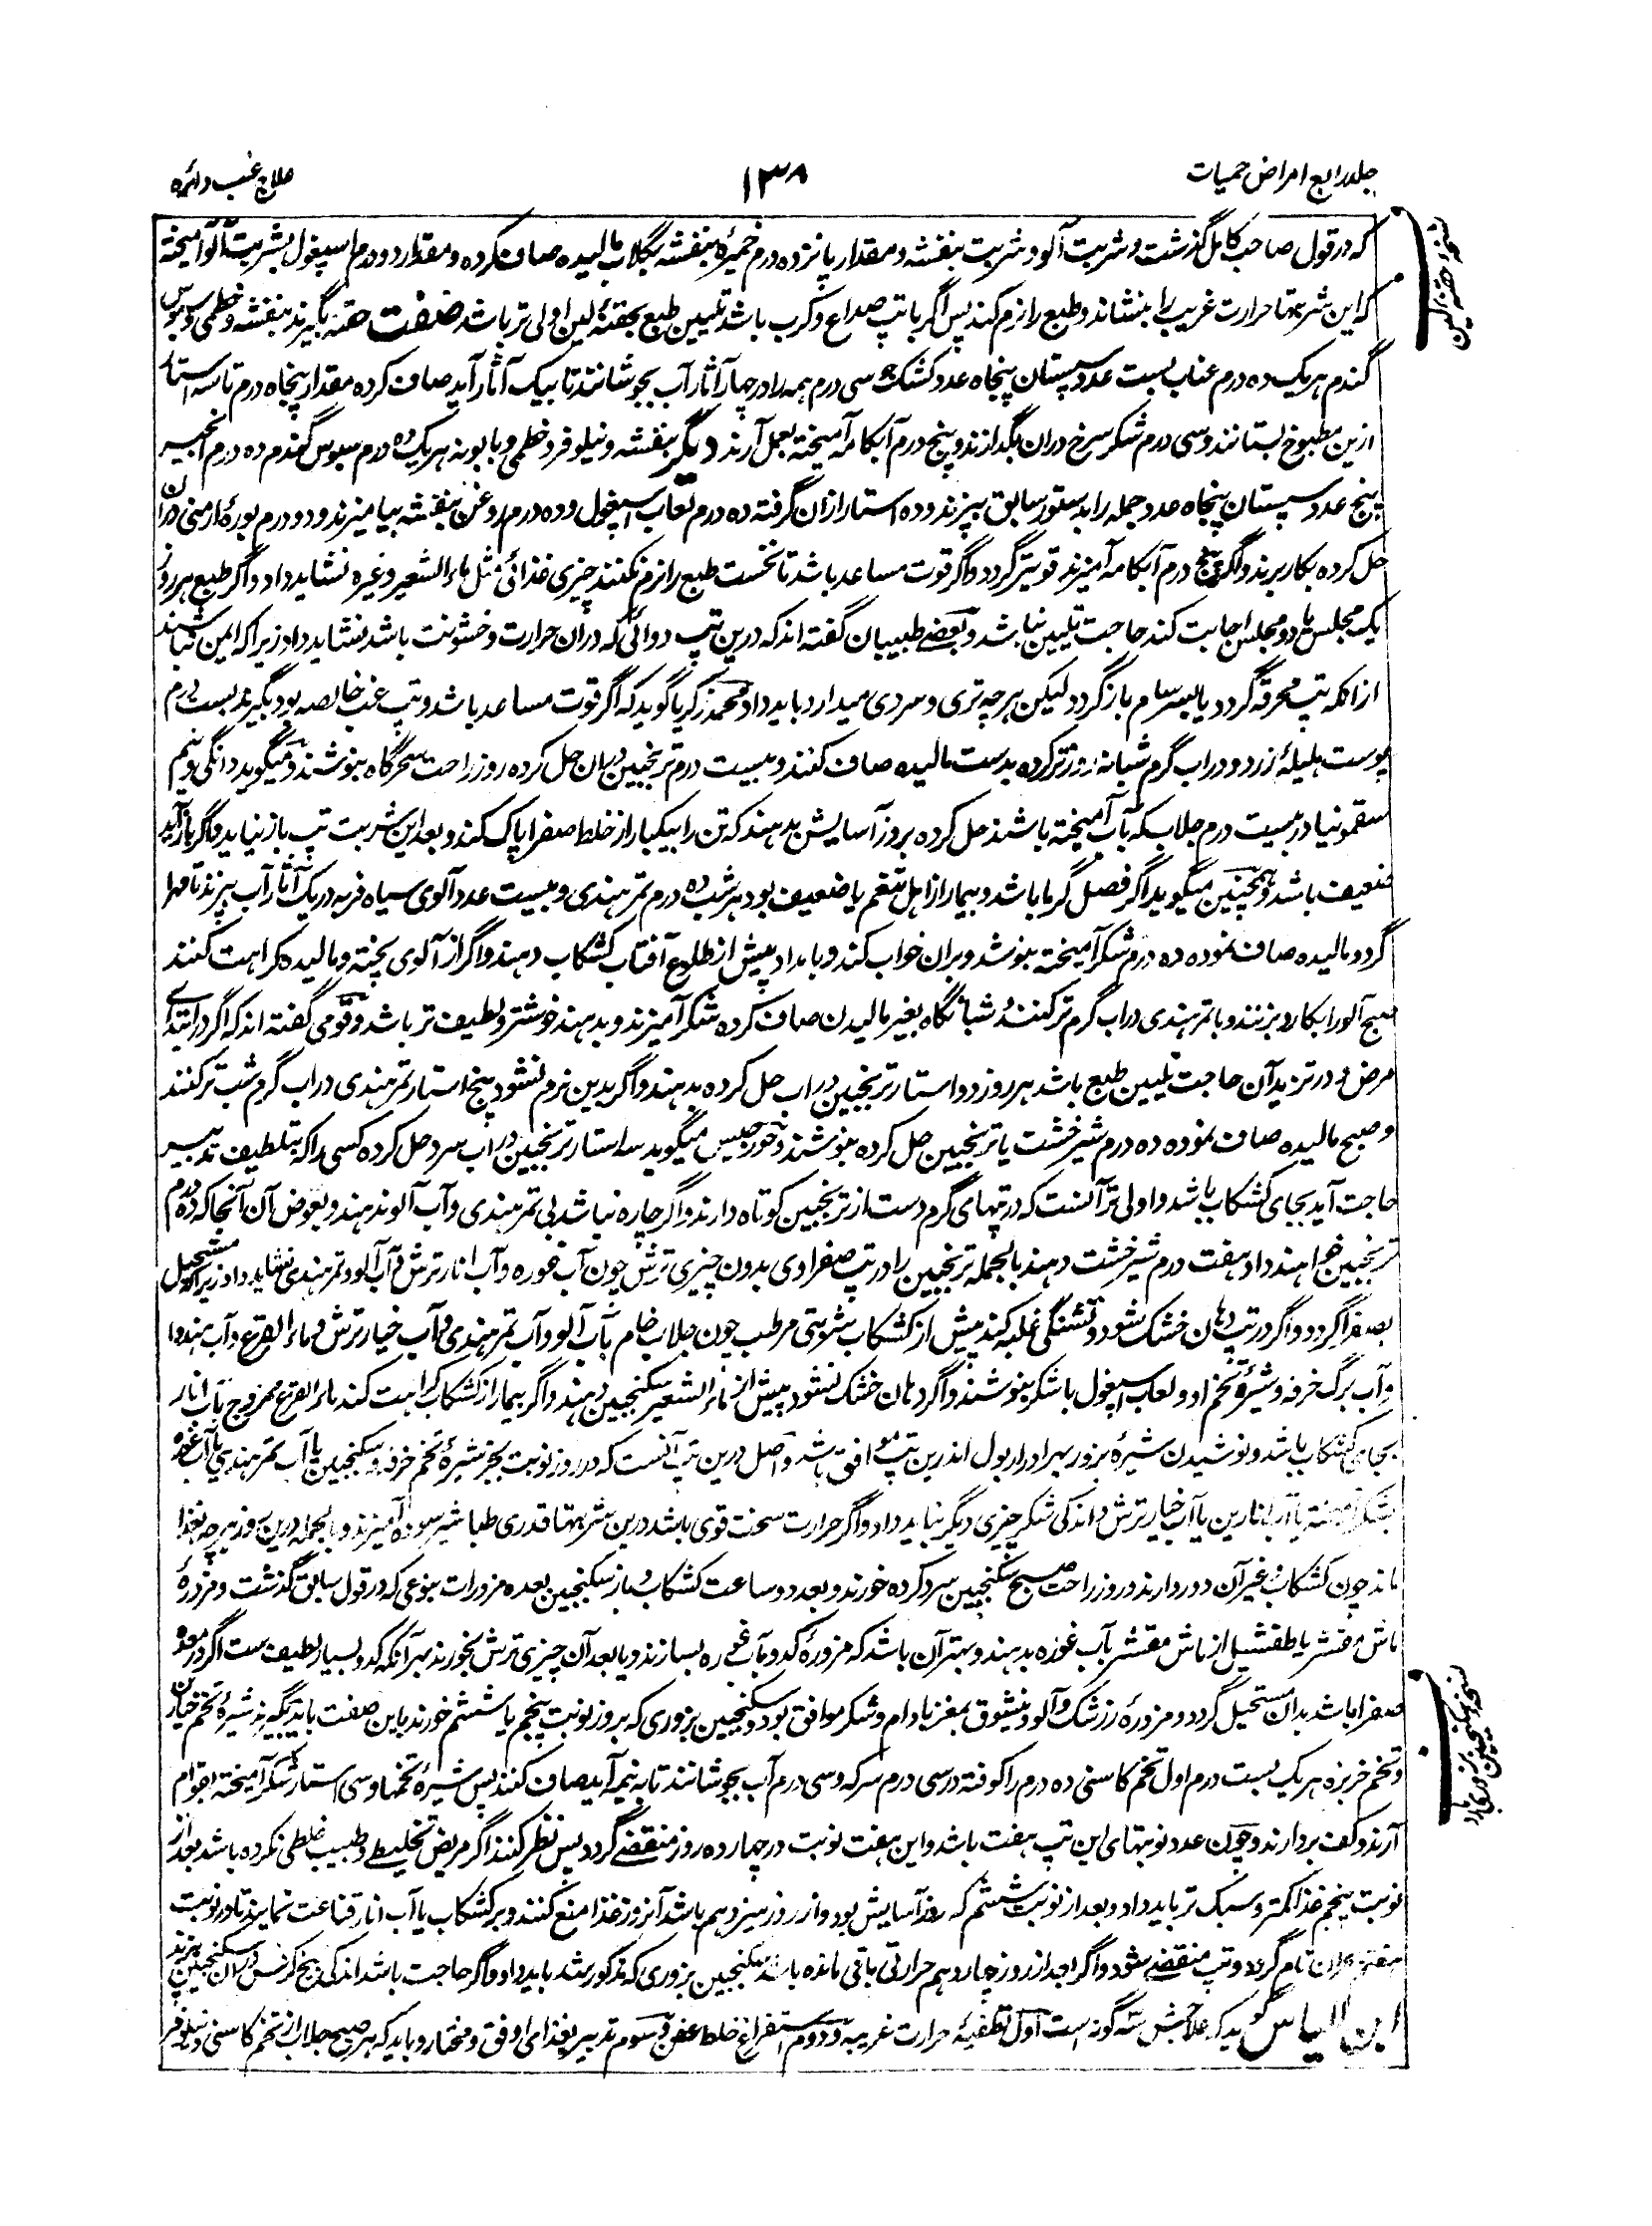 جلد رابع امراض حمیات
۱۳۸
علاج غب دائره
که در قول صاحب کامل گذشت و شربت آلو و شربت بنفشه و مقدار پانزده درم خمیرهٔ بنفشه بگلاب مالیده صاف کرده و مقدار دو درم اسپغول بشربت آلو آمیخته
که این شربتها حرارت غریب را بنشاند و طبع را نرم کند پس اگر با تپ صداع و کرب باشد تلیین طبع بحقنهٔ لین اولی تر باشد صفت حقنه بگیرند بنفشه و خطمی و سبوس
گندم هر یک ده درم عناب بست عدد سپستان پنجاه عدد کشک جو سی درم همه را در چهار آثار آب بجوشانند تا بیک آثار آید صاف کرده مقدار پنجاه درم تا سه استار
ازین مطبوخ بستانند و سی درم شکر سرخ دران بگدازند و پنج درم آبکامه آمیخته بعمل آرند دیگر بنفشه و نیلوفر و خطمی و بابونه هر یک ده درم سبوس گندم ده درم انجیر
پنج عدد سپستان پنجاه عدد جمله را بدستور سابق بپزند و ده استار ازان گرفته ده درم لعاب اسپغول و ده درم روغن بنفشه بیامیزند و دو درم بورهٔ ارمنی دران
حل کرده بکار برند و اگر پنج درم آبکامه آمیزند قویتر گردد و اگر قوت مساعد باشد تا نخست طبع را نرم نکنند چیزی غذائی مثل ماء الشعیر و غیره نشاید داد و اگر طبع هر روز
یک مجلس یا دو مجلس اجابت کند حاجت تلیین نباشد و بعضے طبیبان گفته اند که درین تپ دوائی که دران حرارت و خشونت باشد نشاید داد زیرا که ایمن نباشند
ازانکه تپ محرقه گردد یا بسرسام باز گردد لیکن هر چه تری و سردی میدارد باید داد محمد زکریا گوید که اگر قوت مساعد باشد و تپ غب خالصه بود بگیرند بست درم
پوست هلیلهٔ زرد و در اب گرم شبانه روز تر کرده بدست مالیده صاف کنند و بیست درم ترنجبین دران حل کرده روز راحت سحرگاه بنوشند و میگوید دانگی و نیم
سقمونیا در بیست درم جلاب که بآب آمیخته باشند حل کرده بروز آسایش بدهند که تن را بیکبار از خلط صفرا پاک کند و بعد این شربت تپ باز نیاید و اگر باز آید
ضعیف باشد و همچنین میگوید اگر فصل گرما باشد و بیمار از اهل تنعم یا ضعیف بود هر شب ده درم تمر هندی و بیست عدد آلوی سیاه فربه در یک آثار آب بپزند تا مهرا
گردد مالیده صاف نموده ده درم شکر آمیخته بنوشد و بران خواب کند و بامداد پیش از طلوع آفتاب کشکاب دهند و اگر از آلوی پخته و مالیده کراهت کنند
صبح آلو را بکارد بزنند و با تمر هندی در اب گرم تر کنند و شبانگاه بغیر مالیدن صاف کرده شکر آمیزند و بدهند خوشتر و لطیف تر باشد و قومی گفته اند که اگر در ابتدای
مرض و در تزید آن حاجت تلیین طبع باشد هر روز دو استار ترنجبین در اب حل کرده بدهند و اگر بدین نرم نشود پنج استار تمر هندی در اب گرم شب تر کنند
و صبح مالیده صاف نموده ده درم شیر خشت یا ترنجبین حل کرده بنوشند و جورجیس میگوید سه استار ترنجبین در اب سرد حل کرده کسی را که بتلطیف تدبیر
حاجت آید بجای کشکاب باشد و اولی تر آنست که در تپهای گرم دست از ترنجبین کوتاه دارند و اگر چاره نباشد بی تمر هندی و آب آلو ندهند و بعوض آن آنجا که ده درم
ترنجبین خواهند داد هفت درم شیر خشت دهند بالجمله ترنجبین را در تپ صفراوی بدون چیزی ترش چون آب غوره و آب انار ترش و آب آلو و تمر هندی نشاید داد زیرا که مستحیل
بصفرا گردد و اگر در تپ دهان خشک شود و تشنگی غلبه کند پیش از کشکاب شربتی مرطب چون جلاب خام بآب آلو و آب تمر هندی و یا آب خیار ترش و ماء القرع و آب هندوانه
و آب برگ خرفه و شیرهٔ تخم او و لعاب اسپغول با شکر بنوشند و اگر دهان خشک نشود پیش از ماء الشعیر سکنجبین دهند و اگر بیمار از کشکاب کراهت کند ماء القرع ممزوج بآب انار
بجای کشکاب باشد و نوشیدن شیرهٔ بزور بهر ادرار بول اندرین تپ موافق باشد و اصل درین تپ آنست که در روز نوبت بجز شیرهٔ تخم خرفه و سکنجبین یا آب تمر هندی یا آب غوره
بشکر آمیخته یا آب انارین یا آب خیار ترش و اندکی شکر چیزی دیگر نباید داد و اگر حرارت سخت قوی باشد درین شربتها قدری طباشیر سوده آمیزند و بالجمله درین روز هر چه بغذا
ماند چون کشکاب و غیر آن دور دارند و روز راحت صبح سکنجبین سرد کرده خورند و بعد دو ساعت کشکاب و باز سکنجبین بعده مزورات بنوعی که در قول سابق گذشت و مزورهٔ
ماش مقشر یا طفشیل از ماش مقشر بآب غوره بدهند و بهتر آن باشد که مزورهٔ کدو بآب غوره بسازند و یا بعد آن چیزی ترش بخورند بهر آنکه کدو بسیار لطیف ست اگر در معده
صفرا باشد بدان مستحیل گردد و مزورهٔ زرشک و آلو و نیشوق بمغز بادام و شکر موافق بود و سکنجبین بزوری که بروز نوبت پنجم یا ششم خورند باین صفت باید بگیرند شیرهٔ تخم خیارین
و تخم خربزه هر یک بست درم اول تخم کاسنی ده درم را کوفته در سی درم سرکه و سی درم آب بجوشانند تا به نیمه آید صاف کنند پس شیرهٔ تخمها و سی استار شکر آمیخته بقوام
آرند و کف بردارند و چون عدد نوبتهای این تپ هفت باشد و این هفت نوبت در چهارده روز منقضے گردد پس نظر کنند اگر مریض تخلیط و طبیب غلطی نکرده باشد بعد از
نوبت پنجم غذا کمتر و سبک تر باید داد و بعد از نوبت ششم که روز آسایش بود و از روز سیزدهم باشد آنروز غذا منع کنند و بر کشکاب یا آب انار قناعت نمایند تا در نوبت
هفتم بحران تام گردد و تپ منقضے شود و اگر بعد از روز چهاردهم حرارتی باقی مانده باشد سکنجبین بزوری که مذکور شد باید داد و اگر حاجت باشد اندکی بیخ کرفس دران سکنجبین بپزند
ابن الیاس گوید که علاجش سه گونه است اول تطفیهٔ حرارت غریبه و دوم استفراغ خلط عفن و سوم تدبیر بغذای اوفق و مختار و باید که هر صبح جلاب از تخم کاسنی و نیلوفر